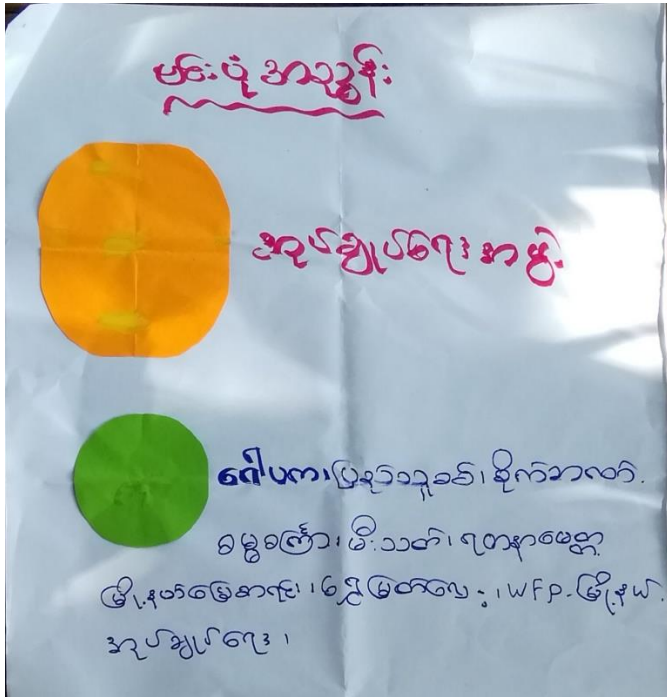 မင်းပုံ အညွှန်း
အုပ်ချုပ်ရေး အဖွဲ့
ဂေါပက၊ ပြည်သူ့စစ်၊ စိုက်
ဓမ္မစင်္ကြာ၊ မီးသတ်၊ ရတနာမေတ္တာ
မြို့နယ်မြေစာရင်း၊ ရွှေမြတ်လေး၊ WFP. မြို့နယ်.
အုပ်ချုပ်ရေး ၊